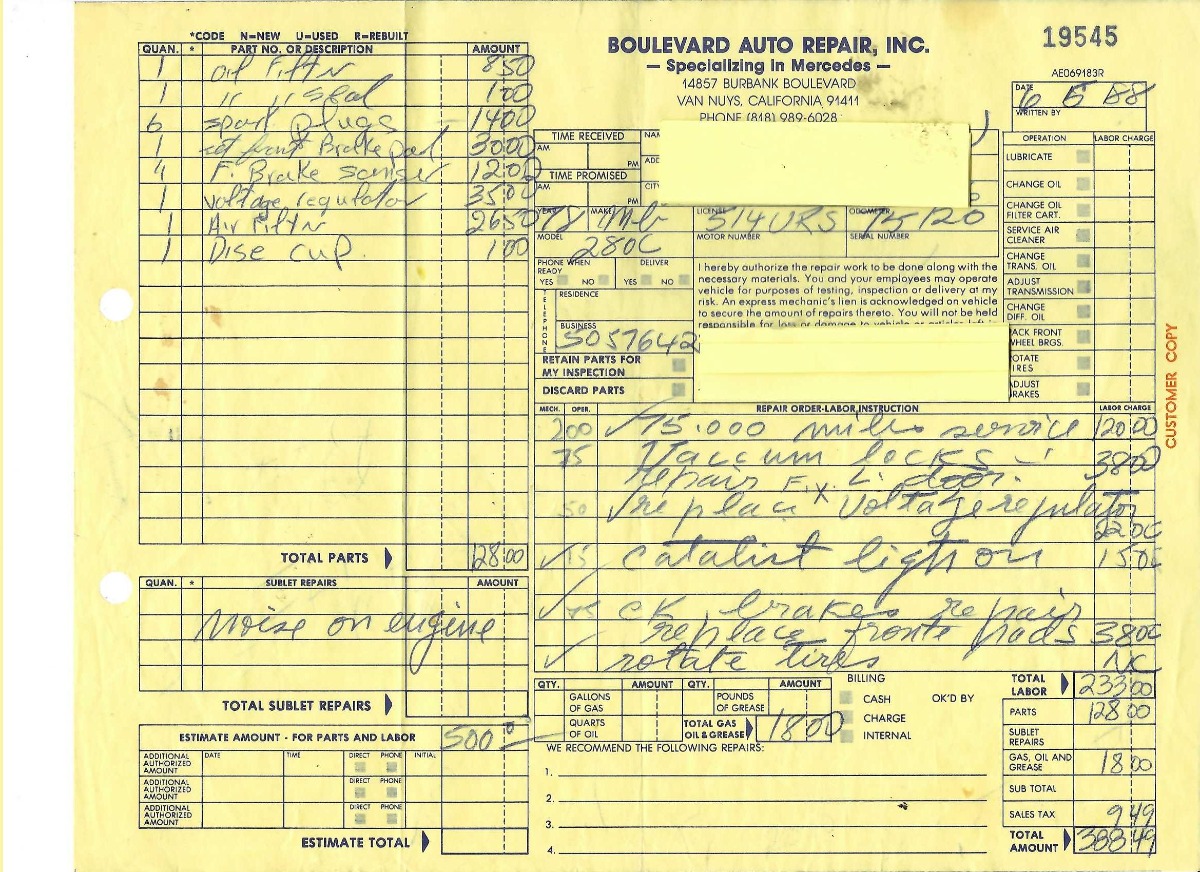 *CODE N=NEW U=USED R=REBUILT
QUAN. * PART NO. OR DESCRIPTION AMOUNT
1 oil Filtr 850
1 " " seal 100
6 spark plugs 1400
1 set front Brake pad 3000
4 F. Brake senser 1200
1 voltage regulator 3500
1 Air Filtr 2650
1 Disc cup. 100
TOTAL PARTS 128 00
QUAN. * SUBLET REPAIRS AMOUNT
Noise on engine
TOTAL SUBLET REPAIRS
ESTIMATE AMOUNT - FOR PARTS AND LABOR 500
ADDITIONAL AUTHORIZED AMOUNT DATE TIME DIRECT PHONE INITIAL
ADDITIONAL AUTHORIZED AMOUNT DIRECT PHONE
ADDITIONAL AUTHORIZED AMOUNT DIRECT PHONE
ESTIMATE TOTAL
BOULEVARD AUTO REPAIR, INC.
— Specializing in Mercedes —
14857 BURBANK BOULEVARD
VAN NUYS, CALIFORNIA 91411
PHONE (818) 989-6028
19545
AE069183R
DATE 6 5 88
WRITTEN BY
TIME RECEIVED
AM PM
TIME PROMISED
AM PM
YEAR 78 MAKE LICENSE 514URS ODOMETER 75120
MODEL 280C MOTOR NUMBER SERIAL NUMBER
PHONE WHEN READY YES NO DELIVER YES NO
TELEPHONE
RESIDENCE
BUSINESS
5057642
RETAIN PARTS FOR
MY INSPECTION
DISCARD PARTS
I hereby authorize the repair work to be done along with the
necessary materials. You and your employees may operate
vehicle for purposes of testing, inspection or delivery at my
risk. An express mechanic's lien is acknowledged on vehicle
to secure the amount of repairs thereto. You will not be held
responsible for loss or damage to vehicle or articles left in
OPERATION LABOR CHARGE
LUBRICATE
CHANGE OIL
CHANGE OIL FILTER CART.
SERVICE AIR CLEANER
CHANGE TRANS. OIL
ADJUST TRANSMISSION
CHANGE DIFF. OIL
PACK FRONT WHEEL BRGS.
ROTATE TIRES
ADJUST BRAKES
CUSTOMER COPY
MECH. OPER. REPAIR ORDER-LABOR INSTRUCTION LABOR CHARGE
200 ✓ 75.000 miles service 120 00
75 Vaccum locks 38 00
repair Fix L. door.
50 ✓ replace Voltage regulator
22 00
✓ 15 Catalist ligh on 15 00
✓ 75 CK brakes repair
replace fronte pads 38 00
✓ rotate tires NC
QTY. AMOUNT QTY. AMOUNT
GALLONS OF GAS POUNDS OF GREASE
QUARTS OF OIL TOTAL GAS OIL & GREASE 18 00
BILLING
CASH OK'D BY
CHARGE
INTERNAL
WE RECOMMEND THE FOLLOWING REPAIRS:
1.
2.
3.
4.
TOTAL LABOR 233 00
PARTS 128 00
SUBLET REPAIRS
GAS, OIL AND GREASE 18 00
SUB TOTAL
SALES TAX 9 49
TOTAL AMOUNT 388 49